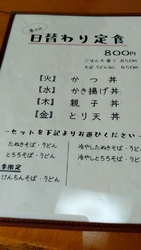 日替わり定食
800円
ごはん大盛り 850円
そば、うどん 650円
【火】 かつ丼
【水】 かき揚げ丼
【木】 親子丼
【金】 とり天丼
ーセットを下記よりお選びくださいー
たぬきそば・うどん 冷やしたぬきそば・うどん
とろろそば・うどん 冷やしとろろそば・うどん
季節限定
けんちんそば・うどん